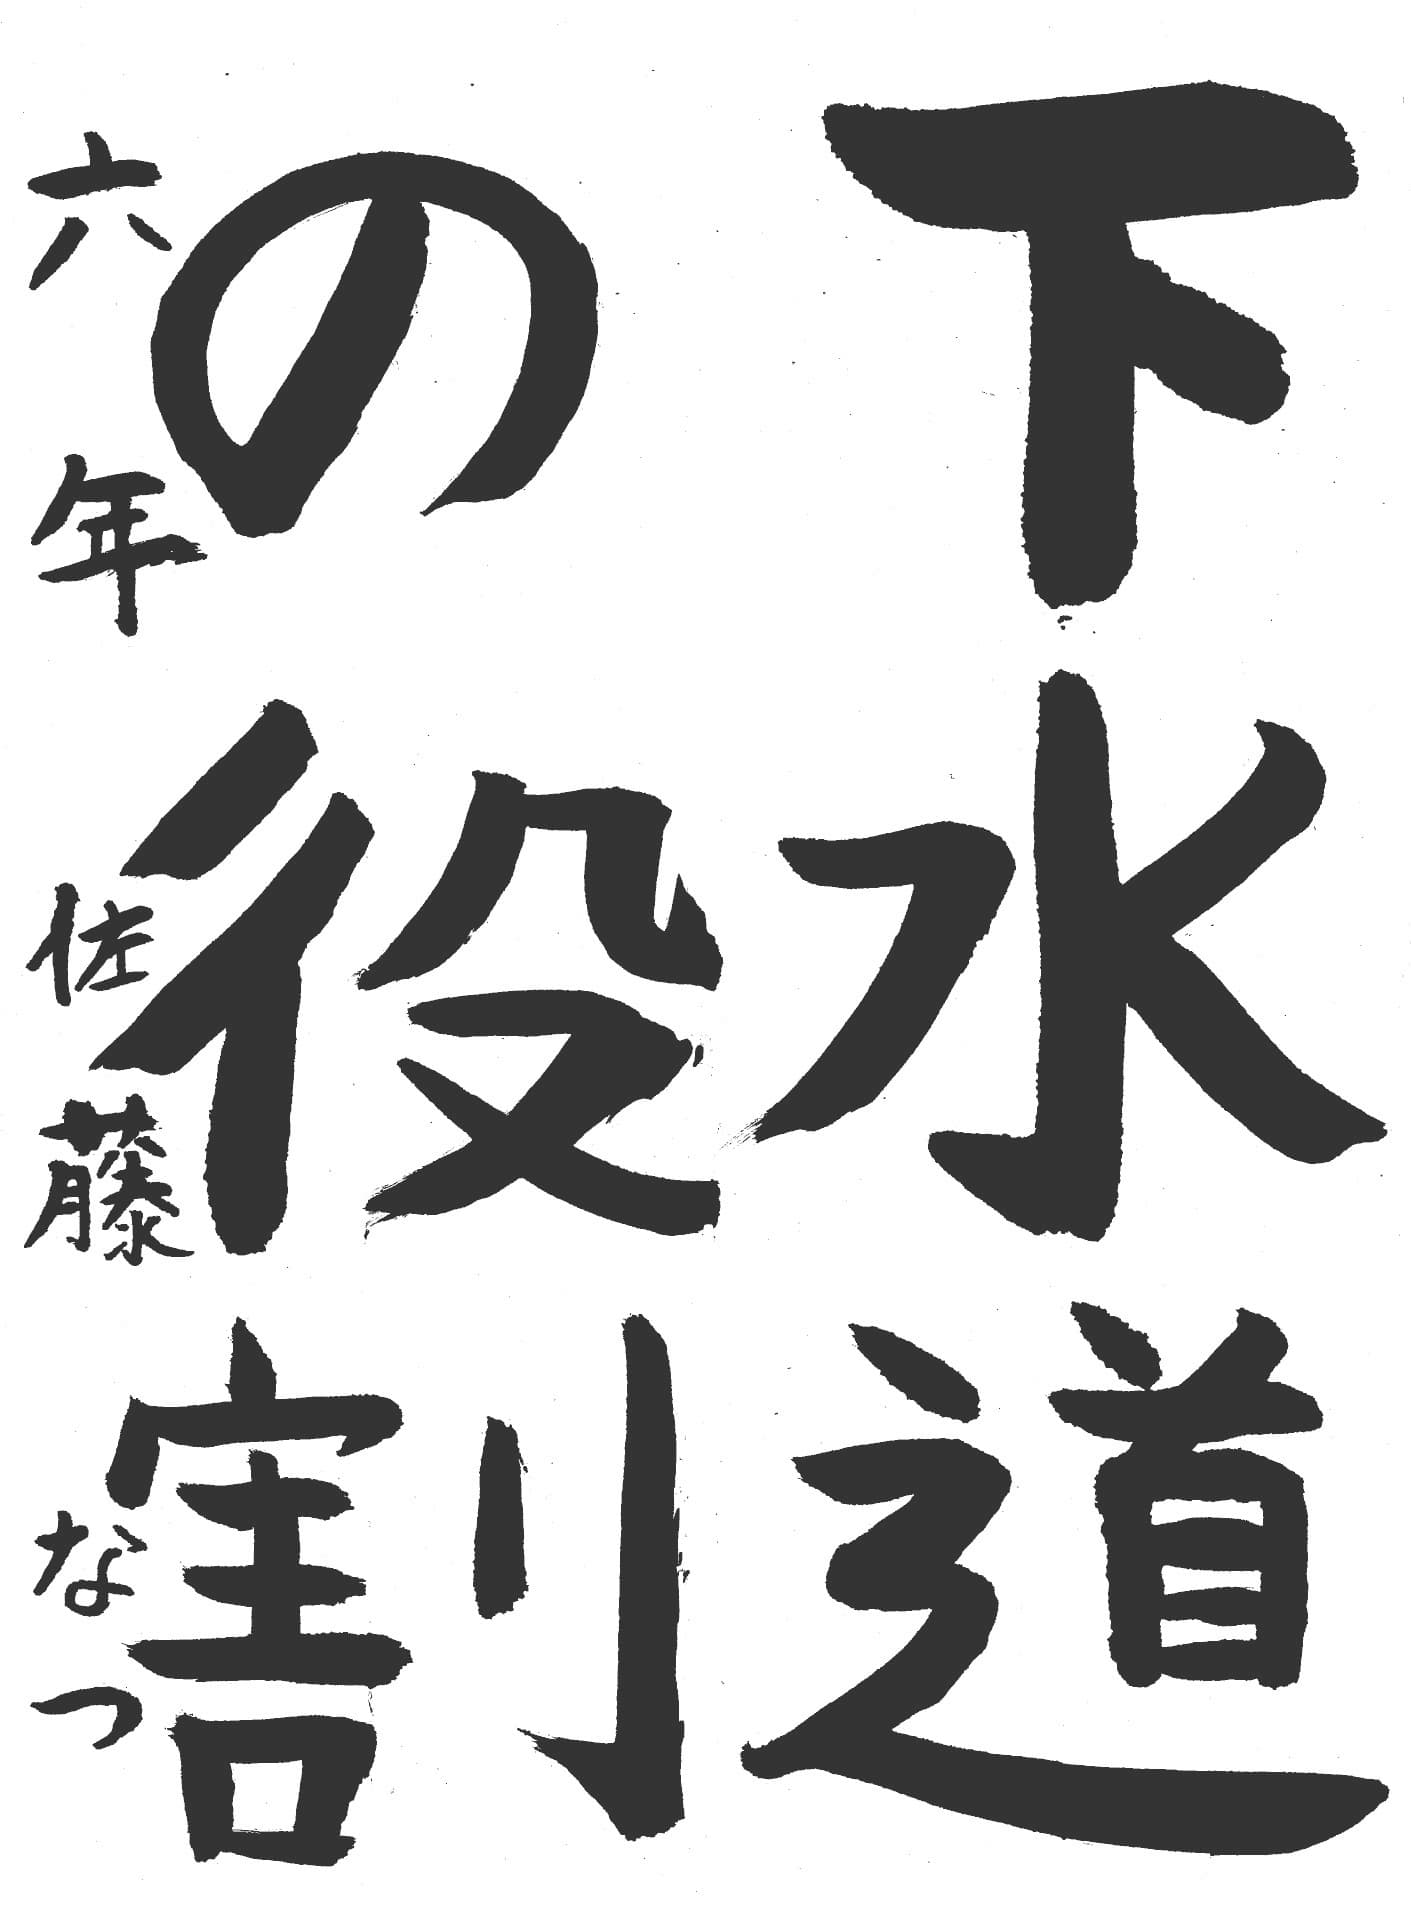 下水道
の役割
六年 佐藤なつ